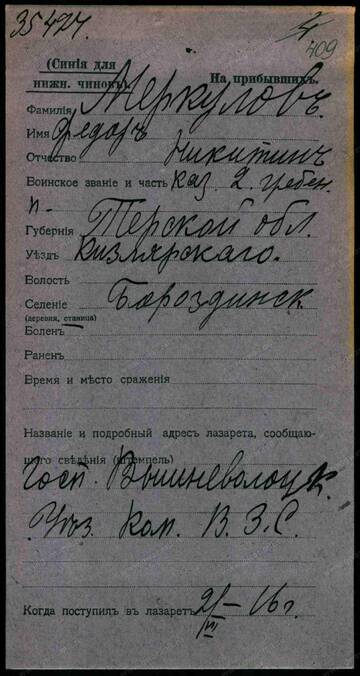 35424.
409
(Синія для
нижн. чиновъ).
На прибывшихъ.
Фамилія Меркуловъ
Имя Федоръ
Отчество Никитинъ
Воинское званіе и часть Каз. 2. гребен.
п-
Губернія Терской обл.
Уѣздъ Кизлярскаго.
Волость
Селеніе Бороздинск
(деревня, станица)
Боленъ
Раненъ
Время и мѣсто сраженія
Названіе и подробный адресъ лазарета, сообщаю-
щаго свѣдѣнія (штемпель)
Госп. Вышневолоцк.
Уѣз. Ком. В. З. С.
Когда поступилъ въ лазаретъ 21/VI — 16 г.